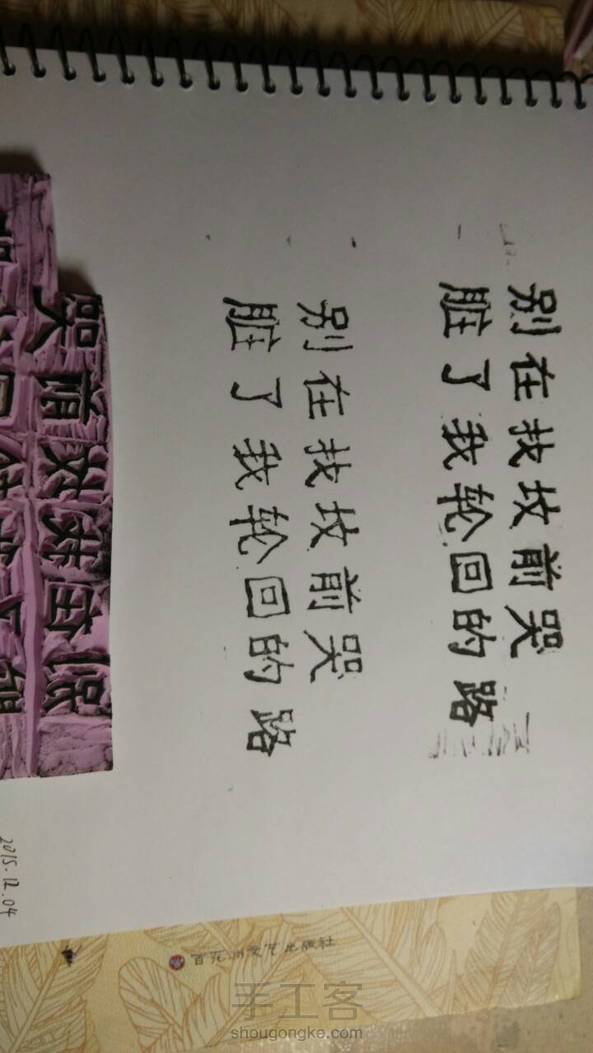 别在我坟前哭
脏了我轮回的路
别在我坟前哭
脏了我轮回的路
2015.12.04
百花洲文艺出版社
手工客
shougongke.com